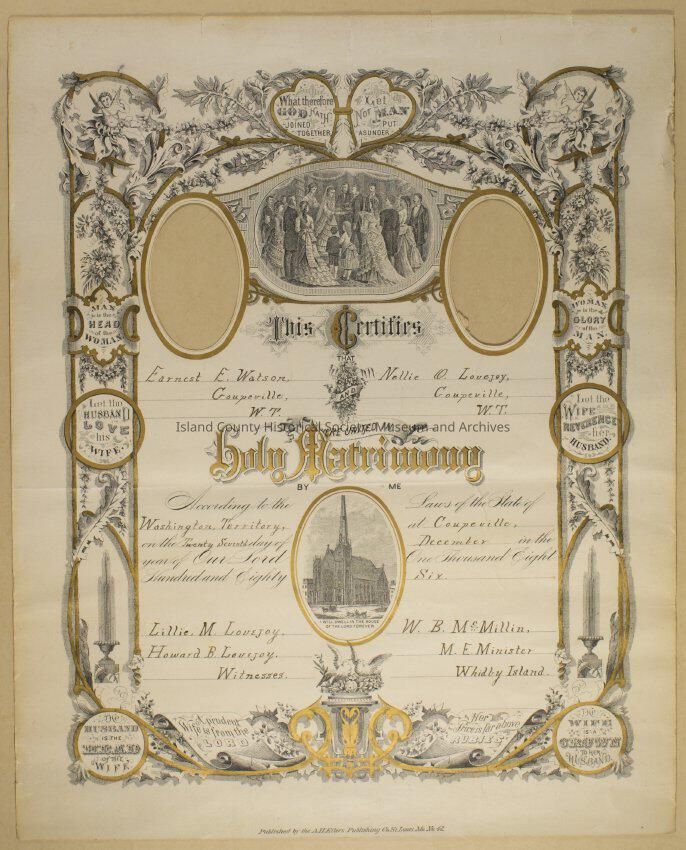 What therefore
GOD hath
JOINED
TOGETHER
Let
Not MAN
PUT
ASUNDER
MAN
is the
HEAD
of the
WOMAN.
WOMAN
is the
GLORY
of the
MAN.
This Certifies
THAT
Earnest E. Watson,
Coupeville,
W.T.
AND
Nellie O. Lovejoy,
Coupeville,
W.T.
Let the
HUSBAND
LOVE
his
WIFE.
Let the
WIFE
REVERENCE
her
HUSBAND.
Island County Historical Society Museum and Archives
WERE UNITED IN
Holy Matrimony
BY ME
According to the Laws of the State of
Washington Territory, at Coupeville,
on the Twenty Seventh day of December in the
year of Our Lord One Thousand Eight
Hundred and Eighty Six.
I WILL DWELL IN THE HOUSE
OF THE LORD FOREVER
Lillie M. Lovejoy,
Howard B. Lovejoy,
Witnesses.
W. B. McMillin,
M. E. Minister
Whidby Island.
The
HUSBAND
IS THE
HEAD
OF THE
WIFE
A prudent
Wife is from the
LORD
Her
Price is far above
RUBIES
The
WIFE
IS A
CROWN
TO HER
HUSBAND.
Published by the A.H. Eilers Publishing Co. St. Louis Mo. No. 42